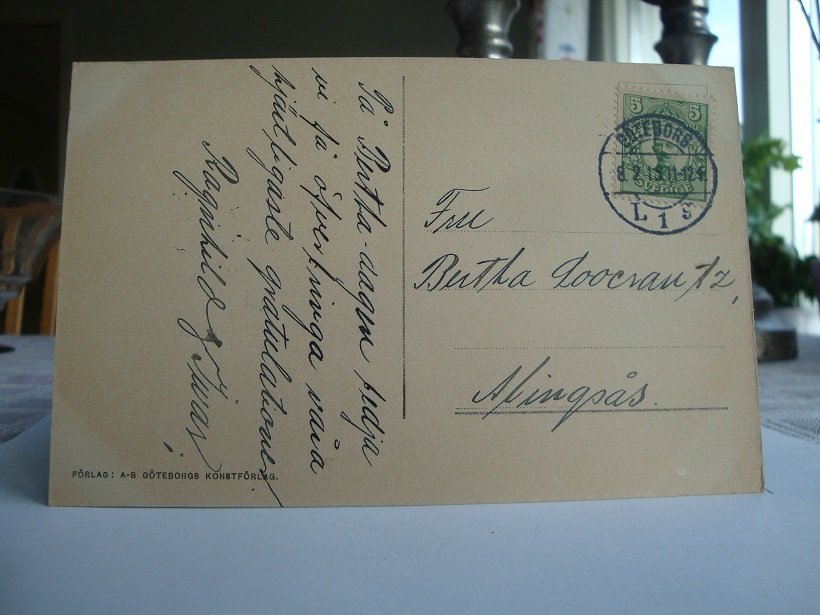 På Bertha-dagen bedja
vi få öfverbringa våra
hjärtligaste gratulationer
Ragnhild
5 5
SVERIGE
GÖTEBORG
8 2 15 11-12 F
L 1 S
Fru
Bertha
Alingsås.
FÖRLAG: A-B GÖTEBORGS KONSTFÖRLAG.